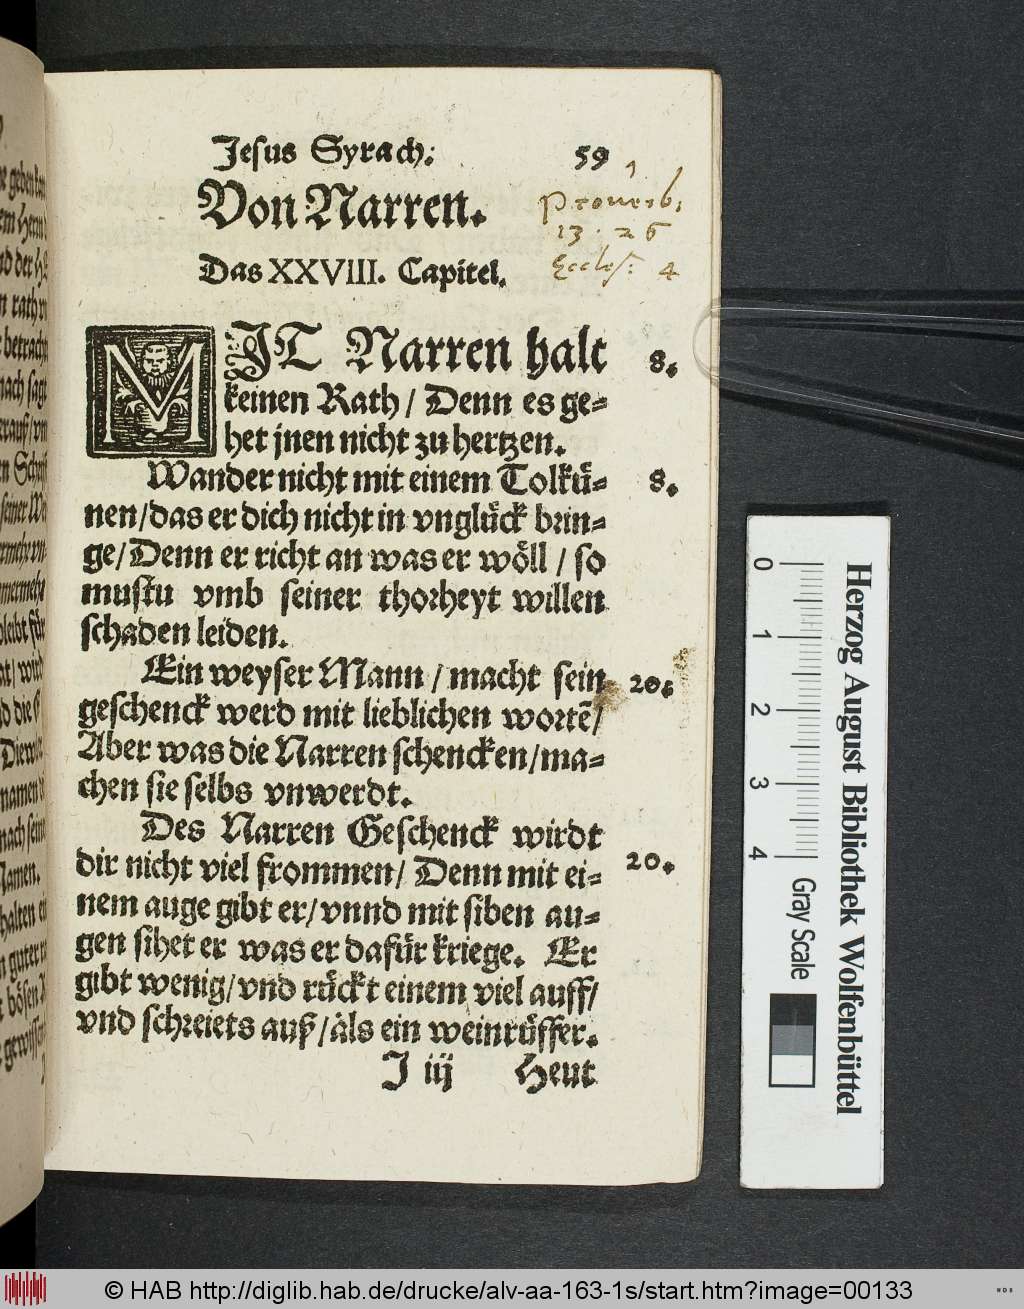 Jesus Syrach: 59
Proverb.
13. 26
Eccles: 4
Von Narren.
Das XXVIII. Capitel.
MJT Narren halt 8.
keinen Rath / Denn es ge=
het jnen nicht zu hertzen.
Wander nicht mit einem Tolkuͤ= 8.
nen/das er dich nicht in vngluͤck brin=
ge/Denn er richt an was er woͤll / so
mustu vmb seiner thorheyt willen
schaden leiden.
Ein weyser Mann / macht sein 20.
geschenck werd mit lieblichen wortē/
Aber was die Narren schencken/ma=
chen sie selbs vnwerdt.
Des Narren Geschenck wirdt
dir nicht viel frommen/ Denn mit ei= 20.
nem auge gibt er/vnnd mit siben au=
gen sihet er was er dafuͤr kriege. Er
gibt wenig/vnd ruͤckt einem viel auff/
vnd schreiets auß/als ein weinruͤffer.
J iij Heut
Herzog August Bibliothek Wolfenbüttel
0 1 2 3 4 Gray Scale
© HAB http://diglib.hab.de/drucke/alv-aa-163-1s/start.htm?image=00133